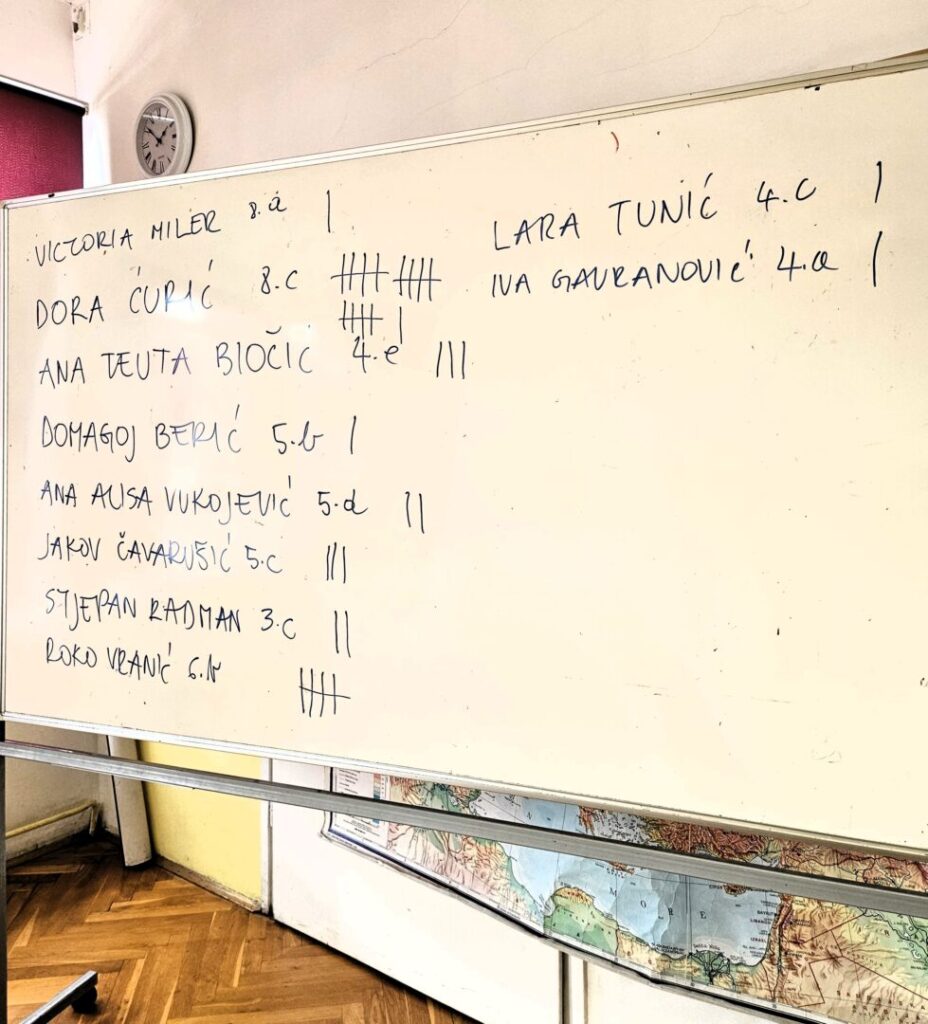 VICTORIA MILER 8.a |
DORA ĆURIĆ 8.c 卌 卌
卌 |
ANA TEUTA BIOČIĆ 4.e |||
DOMAGOJ BERIĆ 5.b |
ANA ALISA VUKOJEVIĆ 5.d ||
JAKOV ČAVARUŠIĆ 5.c |||
STJEPAN RADMAN 3.c ||
ROKO VRANIĆ 6.b 卌
LARA TUNIĆ 4.c |
IVA GAVRANOVIĆ 4.a |
MORE